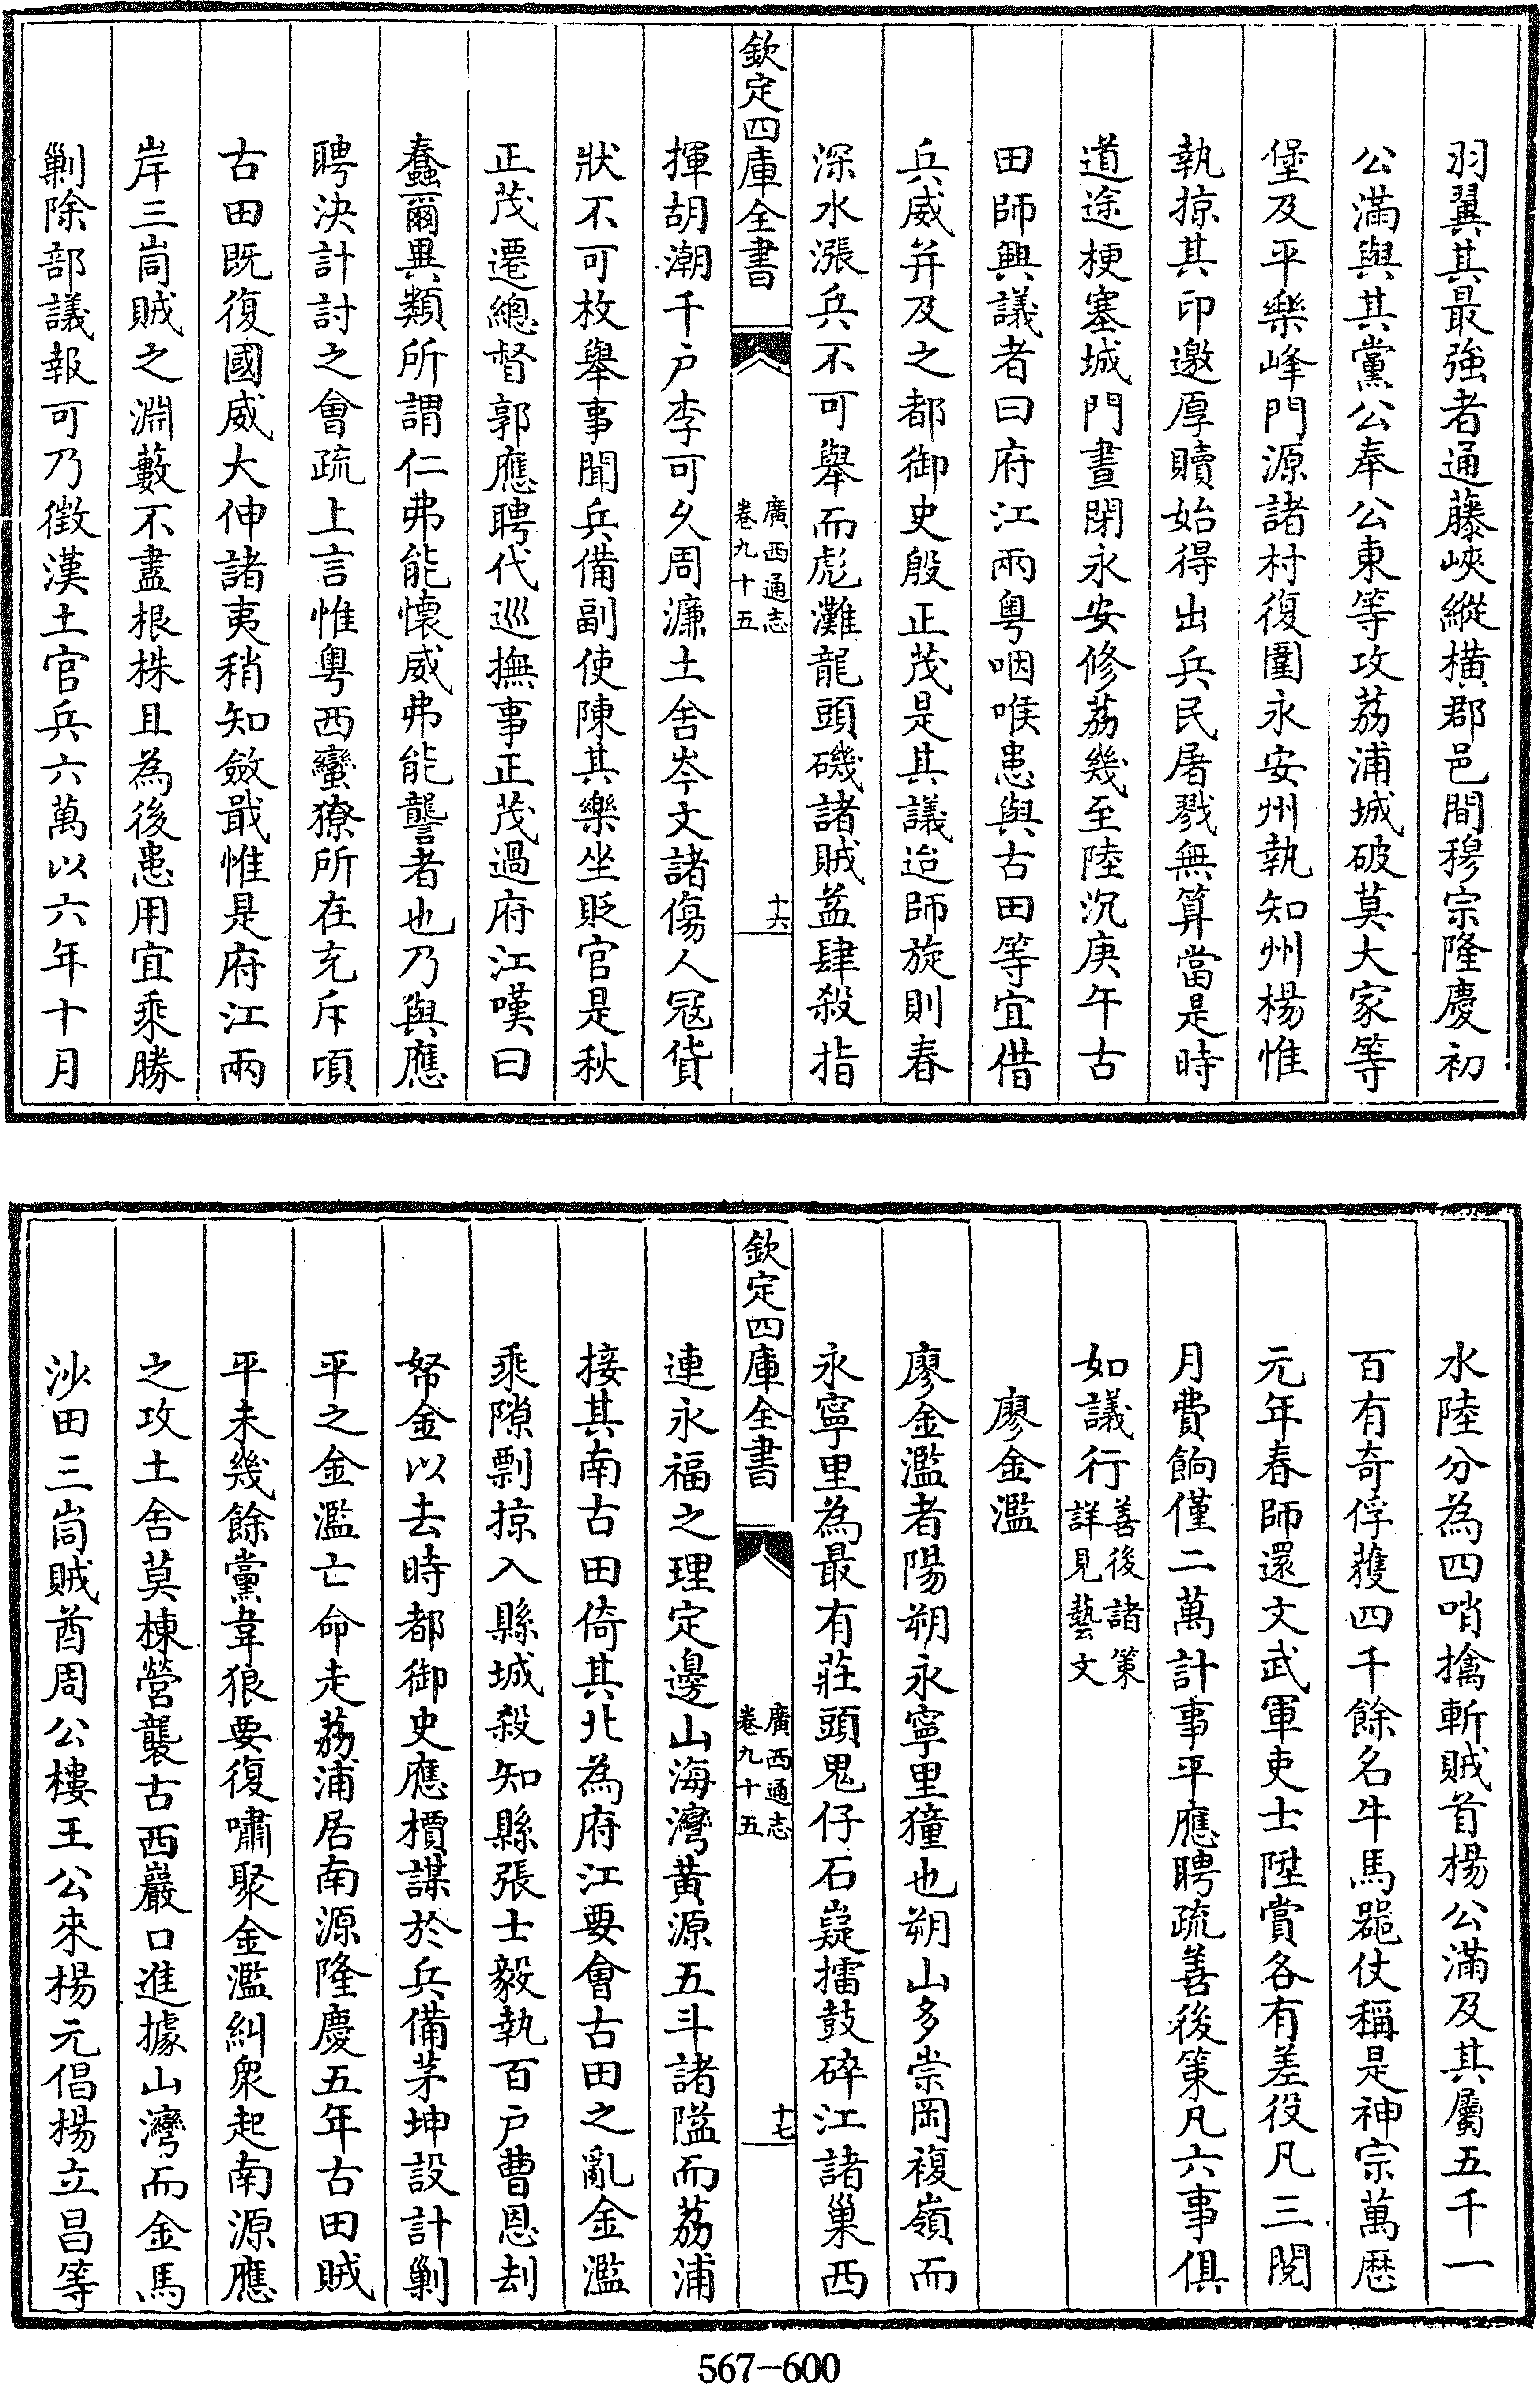 羽翼其最強者通藤峽縱橫郡邑間穆宗隆慶初
公滿與其黨公奉公東等攻荔浦城破莫大家等
堡及平樂峰門源諸村復圍永安州執知州楊惟
執掠其印邀厚贖始得出兵民屠戮無算當是時
道途梗塞城門晝閉永安修荔幾至陸沉庚午古
田師興議者曰府江兩粤咽喉患與古田等宜借
兵威并及之都御史殷正茂是其議迨師旋則春
深水漲兵不可舉而彪灘龍頭磯諸賊益肆殺指
欽定四庫全書
廣西通志
卷九十五
十六
揮胡潮千戶李可久周濂土舍岑文諸傷人冦貨
狀不可枚舉事聞兵備副使陳其樂坐貶官是秋
正茂遷總督郭應聘代巡撫事正茂過府江嘆曰
蠢爾異類所謂仁弗能懷威弗能讋者也乃與應
聘決計討之會疏上言惟粤西蠻獠所在充斥頃
古田既復國威大伸諸夷稍知斂戢惟是府江兩
岸三峝賊之淵藪不盡根株且為後患用宜乘勝
剿除部議報可乃徵漢土官兵六萬以六年十月
水陸分為四哨擒斬賊首楊公滿及其屬五千一
百有奇俘獲四千餘名牛馬噐仗稱是神宗萬歷
元年春師還文武軍吏士陞賞各有差役凡三閱
月費餉僅二萬計事平應聘疏善後策凡六事俱
如議行善後諸策
詳見藝文
廖金濫
廖金濫者陽朔永寧里獞也朔山多崇岡複嶺而
永寧里為最有莊頭鬼仔石嶷擂鼓碎江諸巢西
欽定四庫全書
廣西通志
卷九十五
十七
連永福之理定邊山海灣黃源五斗諸隘而荔浦
接其南古田倚其北為府江要會古田之亂金濫
乘隙剽掠入縣城殺知縣張士毅執百戶曹恩刦
帑金以去時都御史應檟謀於兵備茅坤設計剿
平之金濫亡命走荔浦居南源隆慶五年古田賊
平未幾餘黨韋狼要復嘯聚金濫糾衆起南源應
之攻土舍莫棟營襲古西巖口進據山灣而金馬
沙田三峝賊酋周公樓王公來楊元倡楊立昌等
567-600